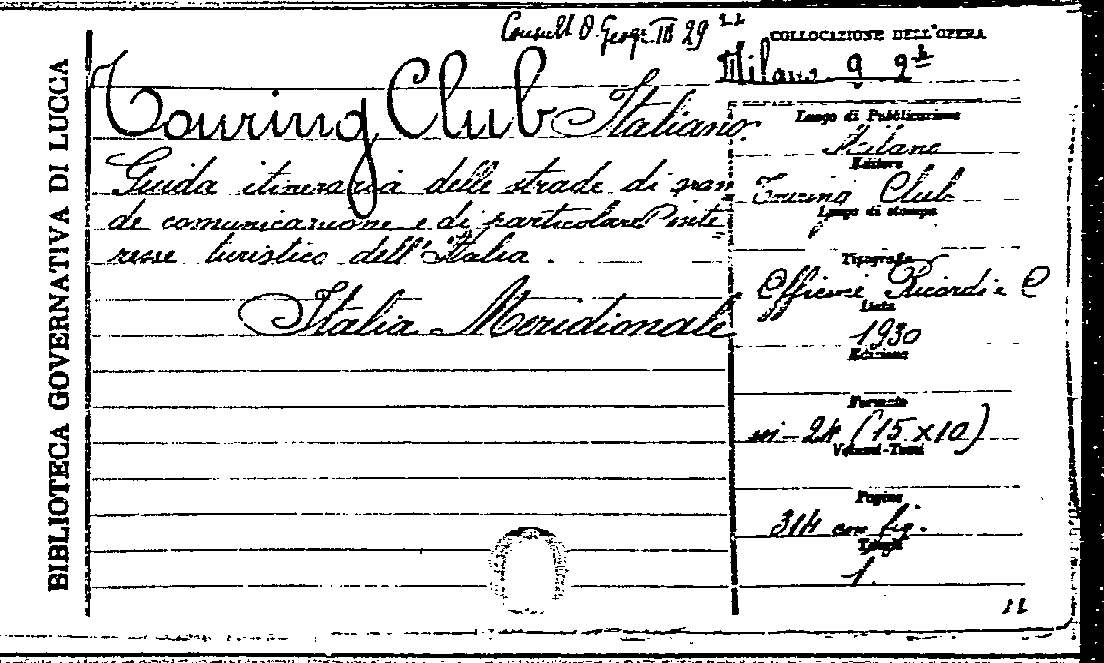 BIBLIOTECA GOVERNATIVA DI LUCCA
Consult O. Geogr. III 29
COLLOCAZIONE DELL'OPERA
Milano 9 2
Touring Club Italiano
Guida itineraria delle strade di gran
de comunicazione e di particolare inte
resse turistico dell'Italia.
Italia Meridionale
Luogo di Pubblicazione
Milano
Editore
Touring Club
Luogo di stampa
Tipografia
Officine Ricordi e C
Data
1930
Edizione
Formato
in-24 (15x10)
Volumi-Tomi
Pagine
314 con fig.
1
11